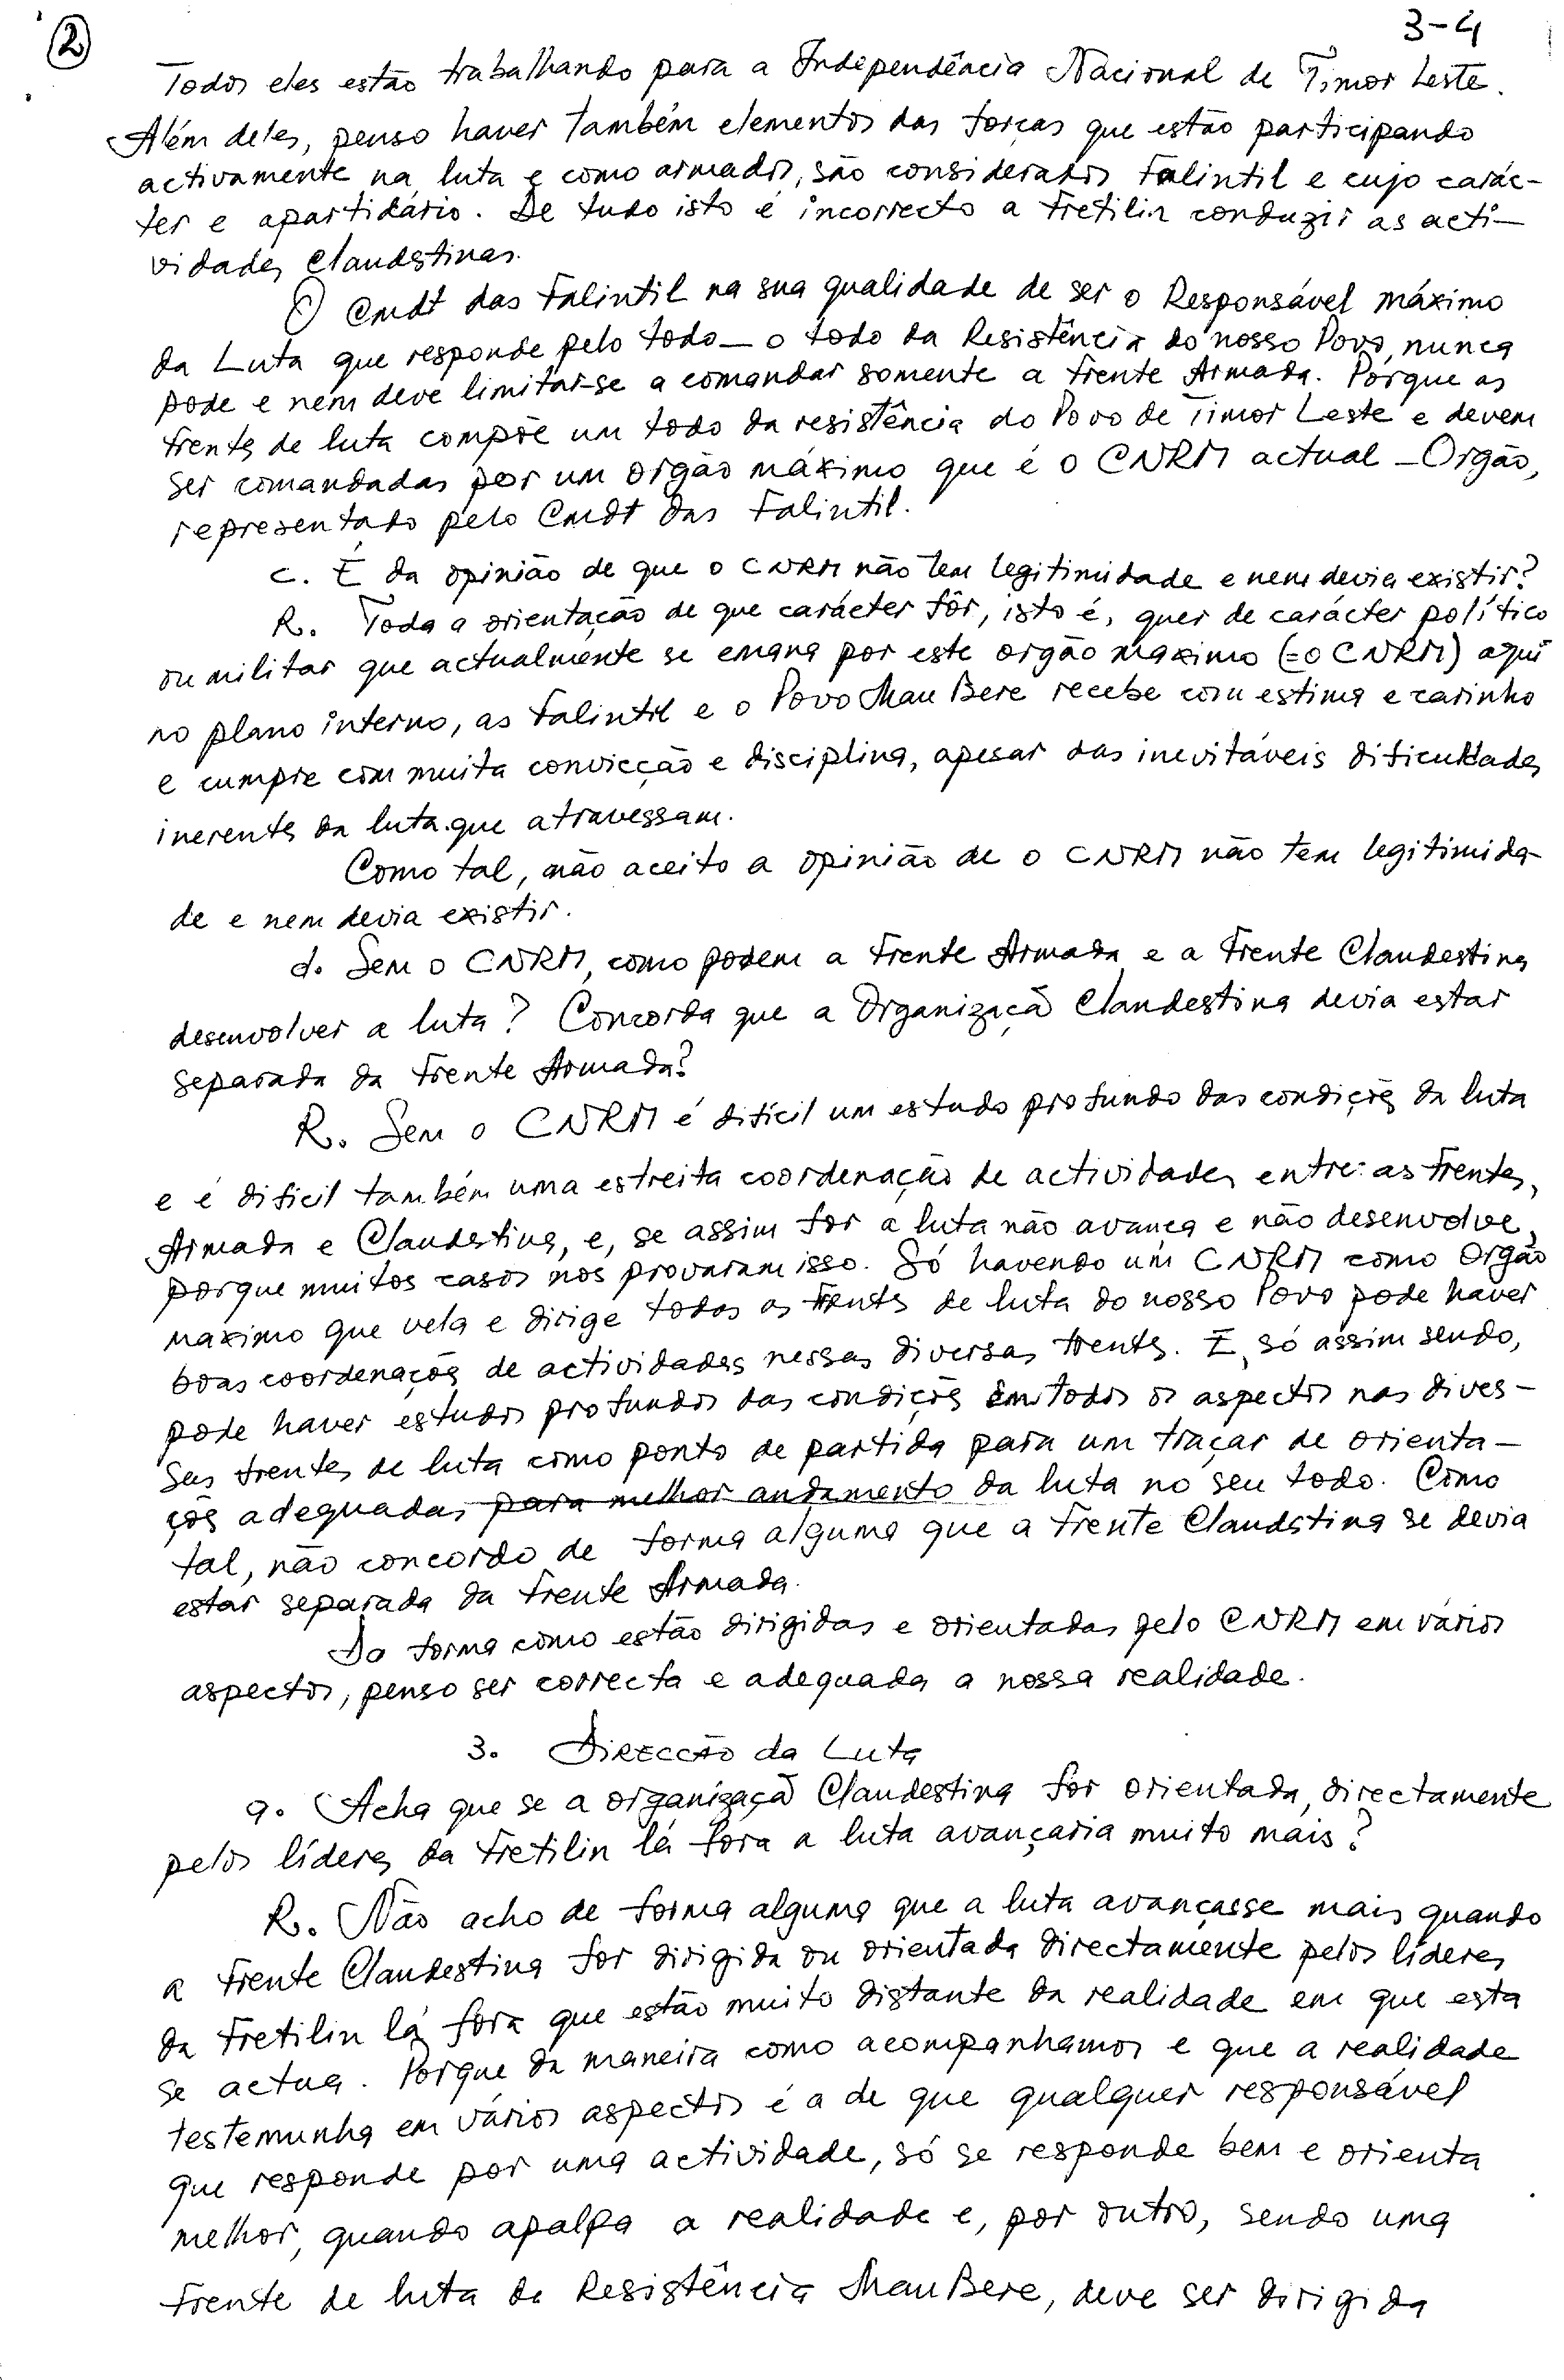 2
3-4
Todos eles estão trabalhando para a Independência Nacional de Timor Leste.
Além deles, penso haver também elementos das forças que estão participando
activamente na luta e como armados, são considerados Falintil e cujo carác-
ter e apartidário. De tudo isto é incorrecto a Fretilin conduzir as acti-
vidades clandestinas.
O Cmdt das Falintil na sua qualidade de ser o Responsável máximo
da Luta que responde pelo todo — o todo da Resistência do nosso Povo, nunca
pode e nem deve limitar-se a comandar somente a Frente Armada. Porque as
frentes de luta compõe um todo da resistência do Povo de Timor Leste e devem
ser comandadas por um orgão máximo que é o CNRM actual — Orgão,
representado pelo Cmdt das Falintil.
c. É da opinião de que o CNRM não tem legitimidade e nem devia existir?
R. Toda a orientação de que carácter fôr, isto é, quer de carácter político
ou militar que actualmente se emana por este orgão maximo (=o CNRM) aqui
no plano interno, as Falintil e o Povo Mau Bere recebe com estima e carinho
e cumpre com muita convicção e disciplina, apesar das inevitáveis dificuldades
inerentes da luta que atravessam.
Como tal, não aceito a opinião de o CNRM não tem legitimida-
de e nem devia existir.
d. Sem o CNRM, como podem a Frente Armada e a Frente Clandestina
desenvolver a luta? Concorda que a Organizaçã Clandestina devia estar
separada da Frente Armada?
R. Sem o CNRM é difícil um estudo profundo das condições da luta
e é dificil também uma estreita coordenação de actividades entre as Frentes,
Armada e Clandestina, e, se assim for a luta não avança e não desenvolve,
porque muitos casos nos provaram isso. Só havendo um CNRM como Orgão
maximo que vela e dirige todas as Frentes de luta do nosso Povo pode haver
boas coordenações de actividades nessas diversas frentes. E, só assim sendo,
pode haver estudos profundos das condições em todos os aspectos nas dives-
sas frentes de luta como ponto de partida para um traçar de orienta-
ções adequadas para melhor andamento da luta no seu todo. Como
tal, não concordo de forma alguma que a Frente Clandestina se devia
estar separada da Frente Armada.
Da forma como estão dirigidas e orientadas pelo CNRM em vários
aspectos, penso ser correcta e adequada a nossa realidade.
3. Direcção da Luta
a. Acha que se a organizaçã Clandestina fôr orientada directamente
pelos líderes da Fretilin lá fora a luta avançaria muito mais?
R. Não acho de forma alguma que a luta avançasse mais quando
a Frente Clandestina for dirigida ou orientada directamente pelos líderes
da Fretilin lá fora que estão muito distante da realidade em que esta
se actua. Porque da maneira como acompanhamos e que a realidade
testemunha em vários aspectos é a de que qualquer responsável
que responde por uma actividade, só se responde bem e orienta
melhor, quando apalpa a realidade e, por outro, sendo uma
Frente de luta da Resistência MauBere, deve ser dirigida